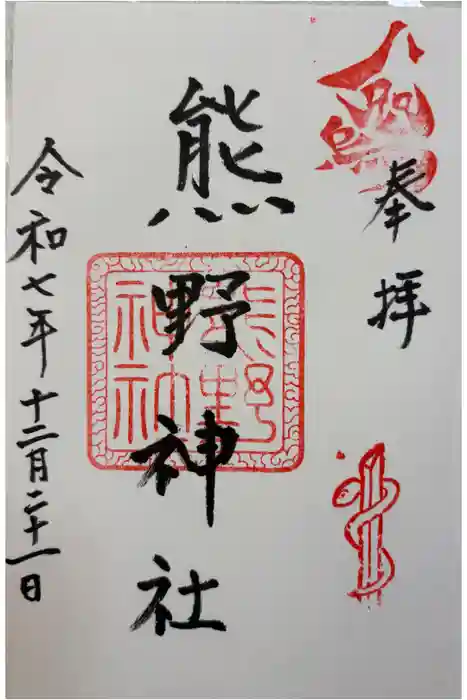 奉拝
八咫烏
熊野神社
熊野
神社
令和七年十二月二十一日